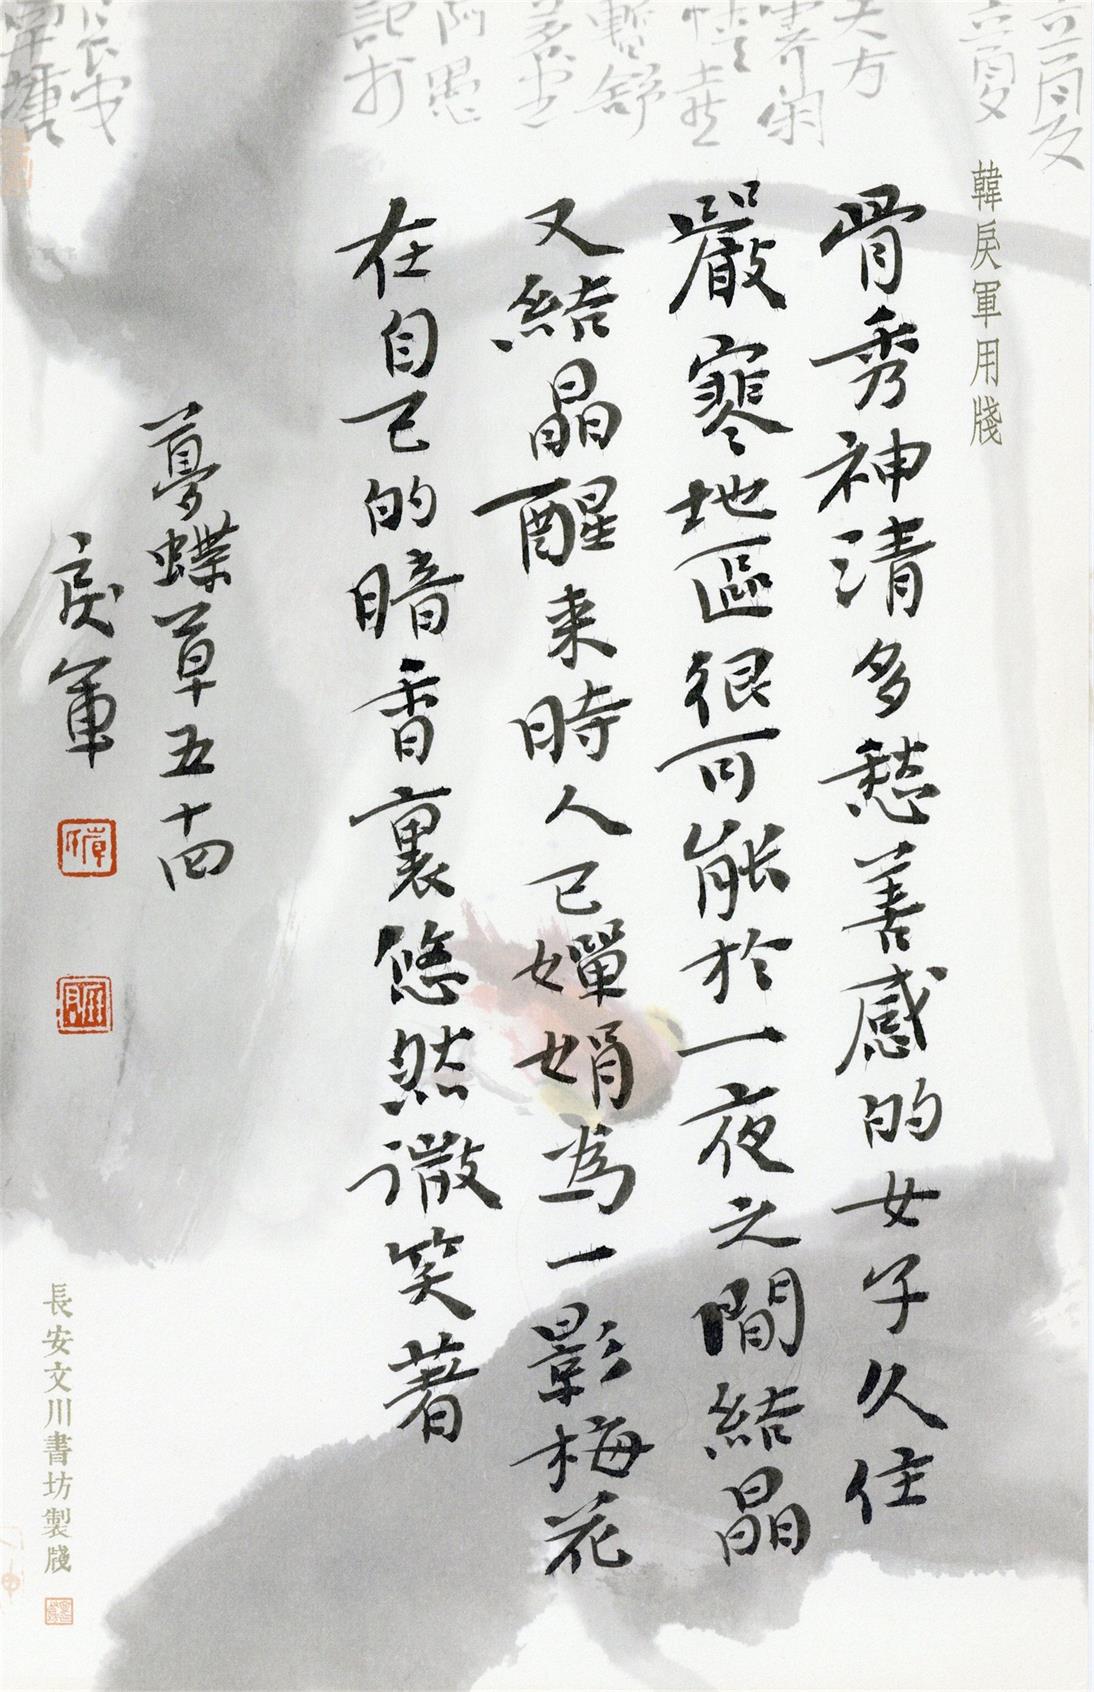 韓戾軍用牋
骨秀神清多愁善感的女子久住
嚴寒地區很可能於一夜之間結晶
又結晶醒来時人已嬋娟為一影梅花
在自己的暗香裏悠然微笑著
夢蝶草五十四
戾軍
長安文川書坊製牋